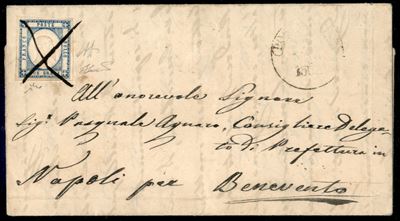 POSTE
FRANCO
BOLLO
All'onorevole Signore
Sigr Pasquale Agnaro, Consigliere Delega-
to di Prefettura in
Napoli per Benevento